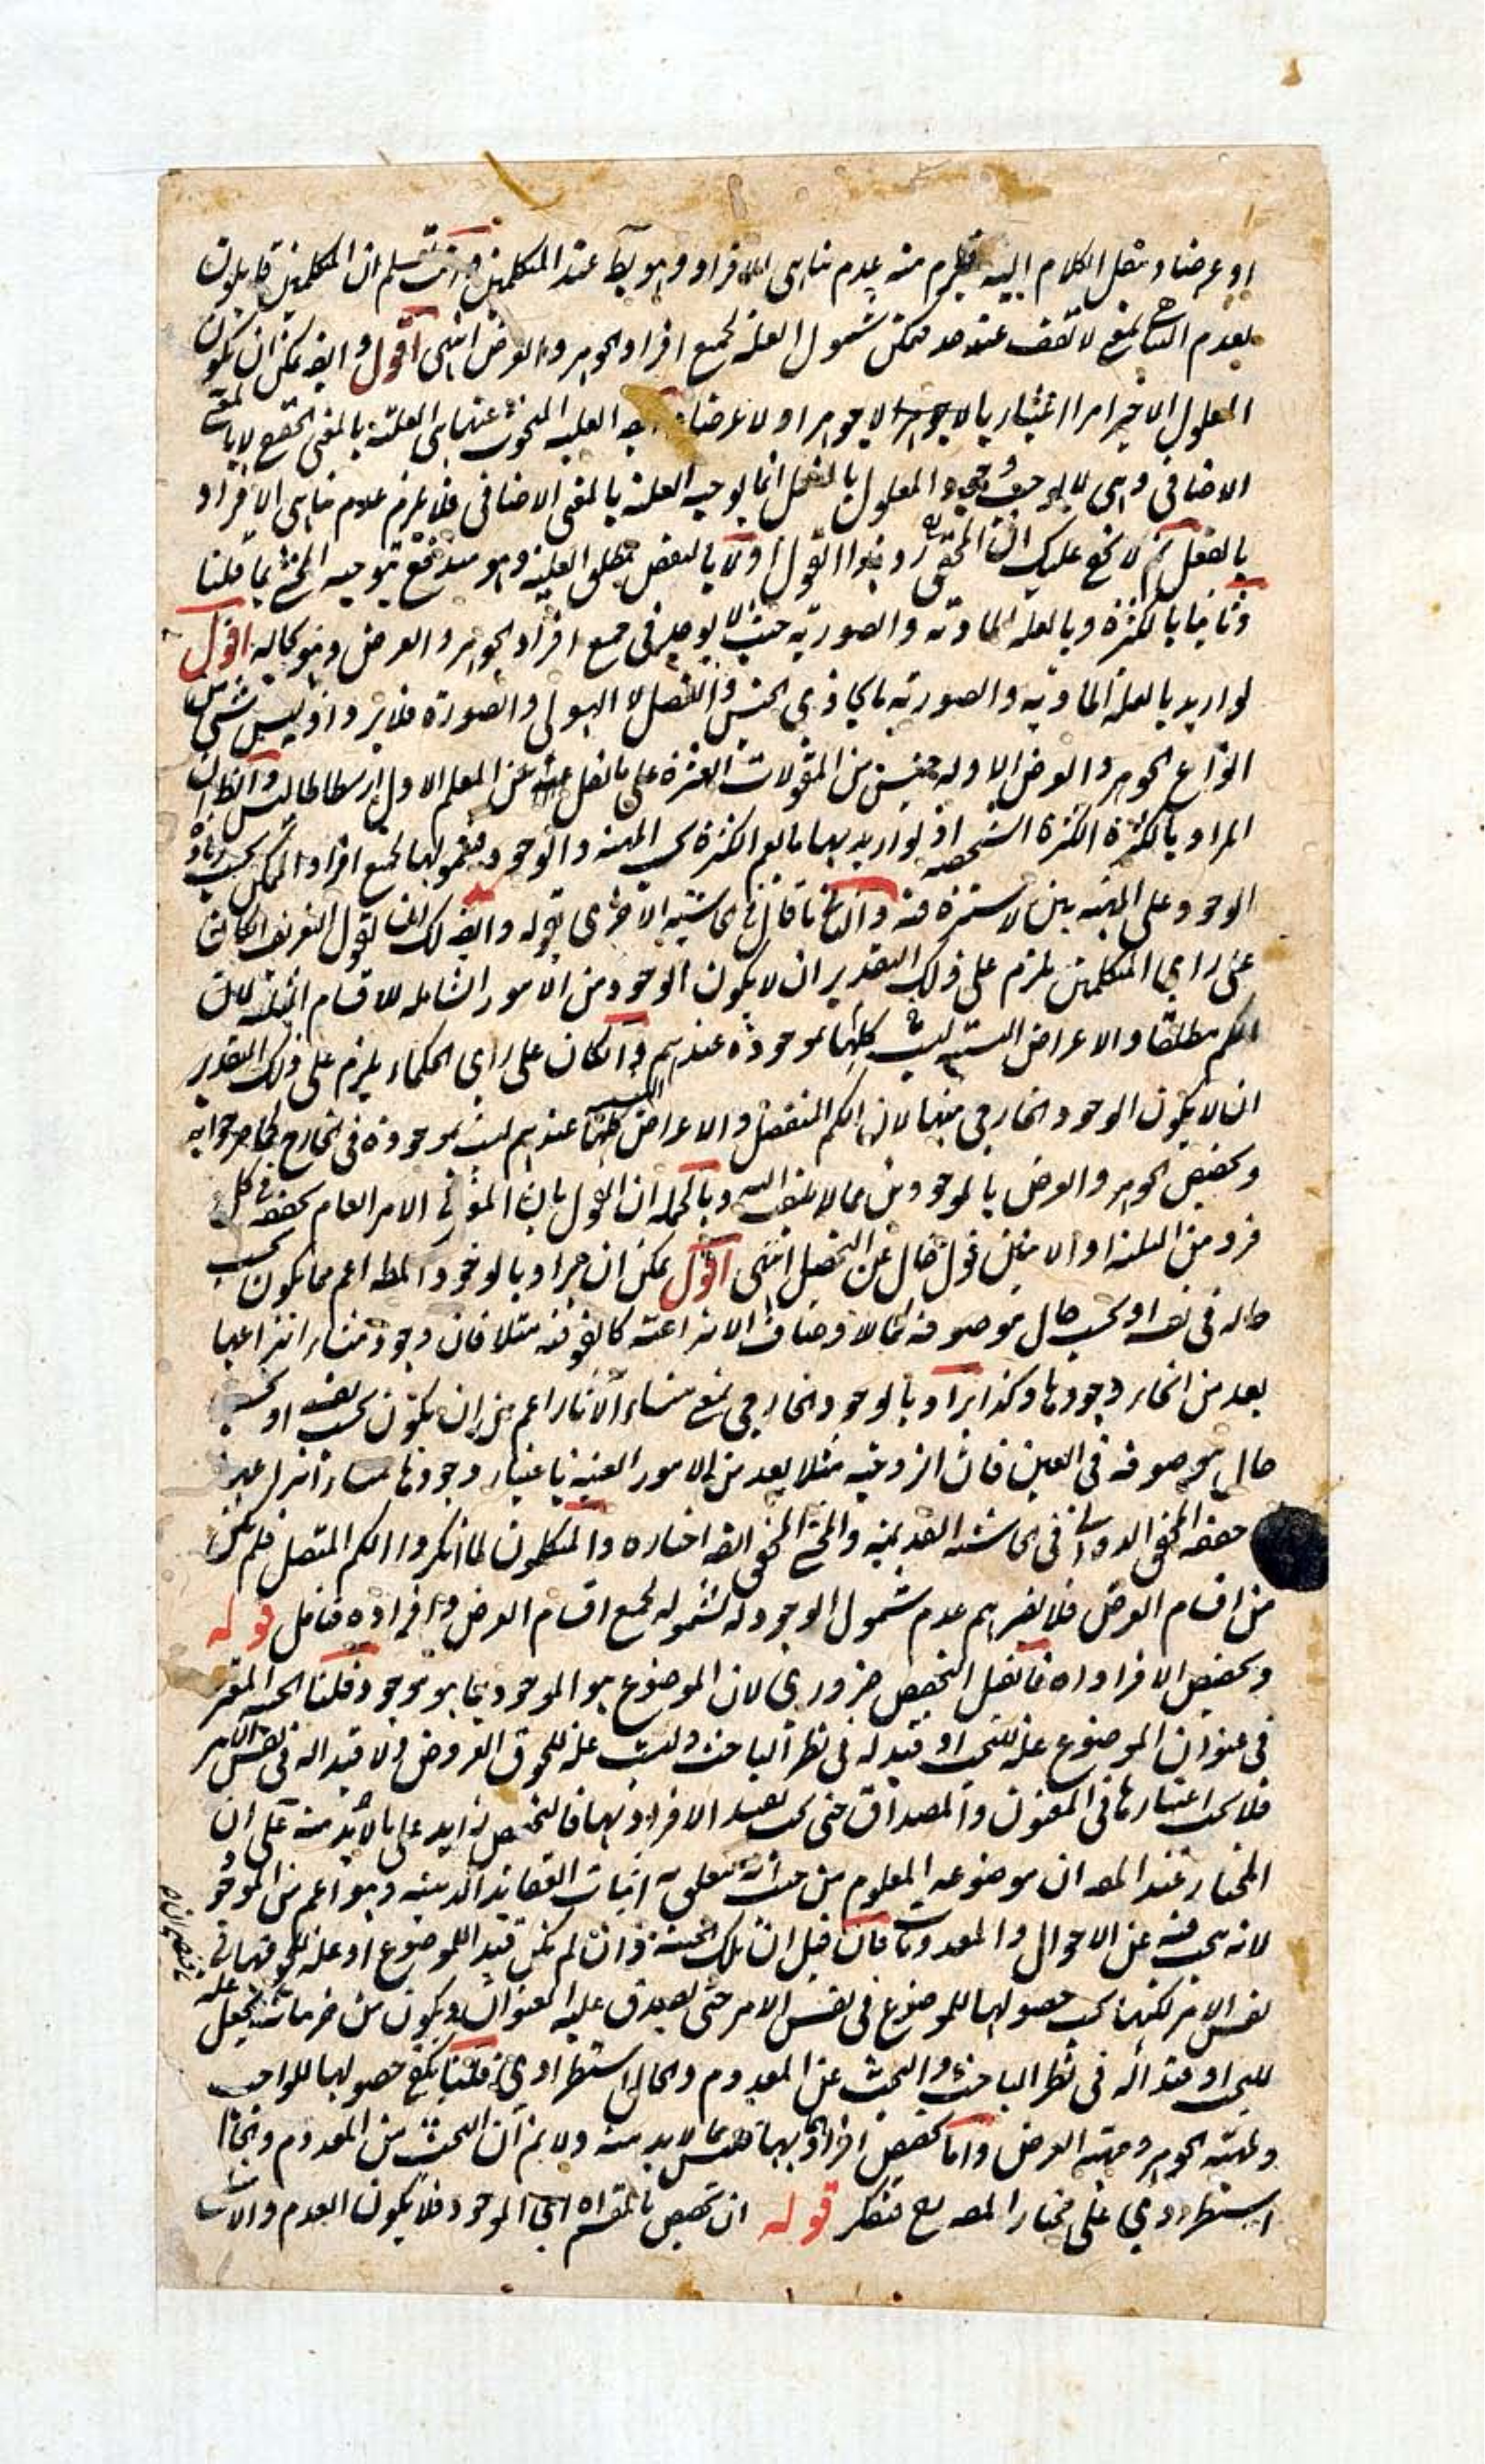 او عرضا وننقل الكلام اليه فيلزم منه عدم تناهى الافراد وهو بط عند المتكلمين وانت تعلم ان المتكلمين قايلون
بعدم التناهى بمعنى لا تقف عند حد فيمكن شمول العلة لجميع افراد الجوهر والعرض انتهى اقول وايضا يمكن ان يكون
المعلول الاخير امرا اعتباريا لا جوهرا ولا عرضا العلية المبحوث عنها هى العلية بالمعنى لا بالمعنى
الاضافى وهى لا يوجب وجود المعلول بالفعل انما يوجبه العلة بالمعنى الاضافى فلا يلزم عدم تناهى الافراد
بالفعل ثم لا يخفى عليك ان المحقق رد هذا القول اولا بالنقض بمطلق العلية وهو مندفع بتوجيه المحشى بما قلنا
وثانيا بالكثرة وبالعلة المادية والصورية حيث لا يوجد فى جميع افراد الجوهر والعرض وهو بحاله اقول
لو اريد بالعلة المادية والصورية ما يحاذى الجنس والفصل لا الهيولى والصورة فلا يرد اذ ليس شىء من
انواع الجوهر والعرض الا وله جنس من المقولات العشرة على ما نقل عن المعلم الاول ارسطاطاليس والظ ان
المراد بالكثرة الكثرة الشخصية اذ لو اريد بها ما يعم الكثرة بحسب المهية والوجود فشمولها لجميع افراد الممكن بحسب زيادة
الوجود على المهية بين لا سترة فيه والثانى ما قال فى حاشيته الاخرى بقوله وايضا لك ان تقول التعريف ان كان
على راى المتكلمين يلزم على ذلك التقدير ان لا يكون الوجود من الامور الشاملة للاقسام الثلثة لان
الكم مطلقا والاعراض النسبية ليست كلها بموجودة عندهم وان كان على راى الحكماء يلزم على ذلك التقدير
ان لا يكون الوجود الخارجى منها لان الكم المنفصل والاعراض النسبية كلها عندهم ليست بموجودة فى الخارج كما صرحوا به
وتخصيص الجوهر والعرض بالموجودين مما لا يلتفت اليه وبالجملة ان القول بان المعتبر فى الامر العام تحققه فى كل
فرد من الثلثة او الاثنين قول خال عن التحصيل انتهى اقول يمكن ان يراد بالوجود المط اعم مما يكون بحسب
حاله فى نفسه او بحسب حال موصوفه كما لاوصاف الانتزاعية كالفوقية مثلا فان وجود منشاء انتزاعها
يعد من انحاء وجودها وكذا يراد بالوجود الخارجى بمعنى منشاء الاثار اعم من ان يكون بحسب نفسه او بحسب
حال موصوفه فى العين فان الزوجية مثلا يعد من الامور العينية باعتبار وجودها منشاء انتزاعها
حققه المحقق الدوانى فى حاشيته القديمة والمحشى المحقق ايضا اختاره والمتكلمون لما انكروا الكم المتصل فلم يكن
من اقسام العرض فلا يضرهم عدم شمول الوجود له لشموله لجميع اقسام العرض وافراده فتامل قوله
وتخصيص الافراد اه فان قيل التخصيص ضرورى لان الموضوع هو الموجود بما هو موجود قلنا الحيثية المعتبر
فى عنوان الموضوع علة للبحث او قيد له فى نظر الباحث وليست علة للحوق العروض ولا قيدا له فى نفس الامر
فلا يجب اعتبارها فى المعنون والمصداق حتى يجب تقييد الافراد بها فالتخصيص زايد على ما لا بد منه على ان
المختار عند المص ان موضوعه المعلوم من حيث انه يتعلق به اثبات العقايد الدينية وهو اعم من الموجود
لانه يبحث فيه عن الاحوال والمعدومات فان قيل ان تلك الحيثية وان لم يكن قيدا للموضوع او علة للحوقها فى
نفس الامر لكنه يجب حصولها للموضوع فى نفس الامر حتى يصدق عليه العنوان ويكون من جزئياته فيجعل علة
للبحث او قيدا له فى نظر الباحث والبحث عن المعدوم والحال استطرادى قلنا يكفى حصولها للواجب
ومهية الجوهر ومهية العرض واما تخصيص افرادهما بها فليس مما لا بد منه ولا نم ان البحث من المعدوم والحال
استطرادى على مختار المص فتفكر قوله ان تخصيص بالمقسم اه اى الموجود فلا يكون العدم والامتناع